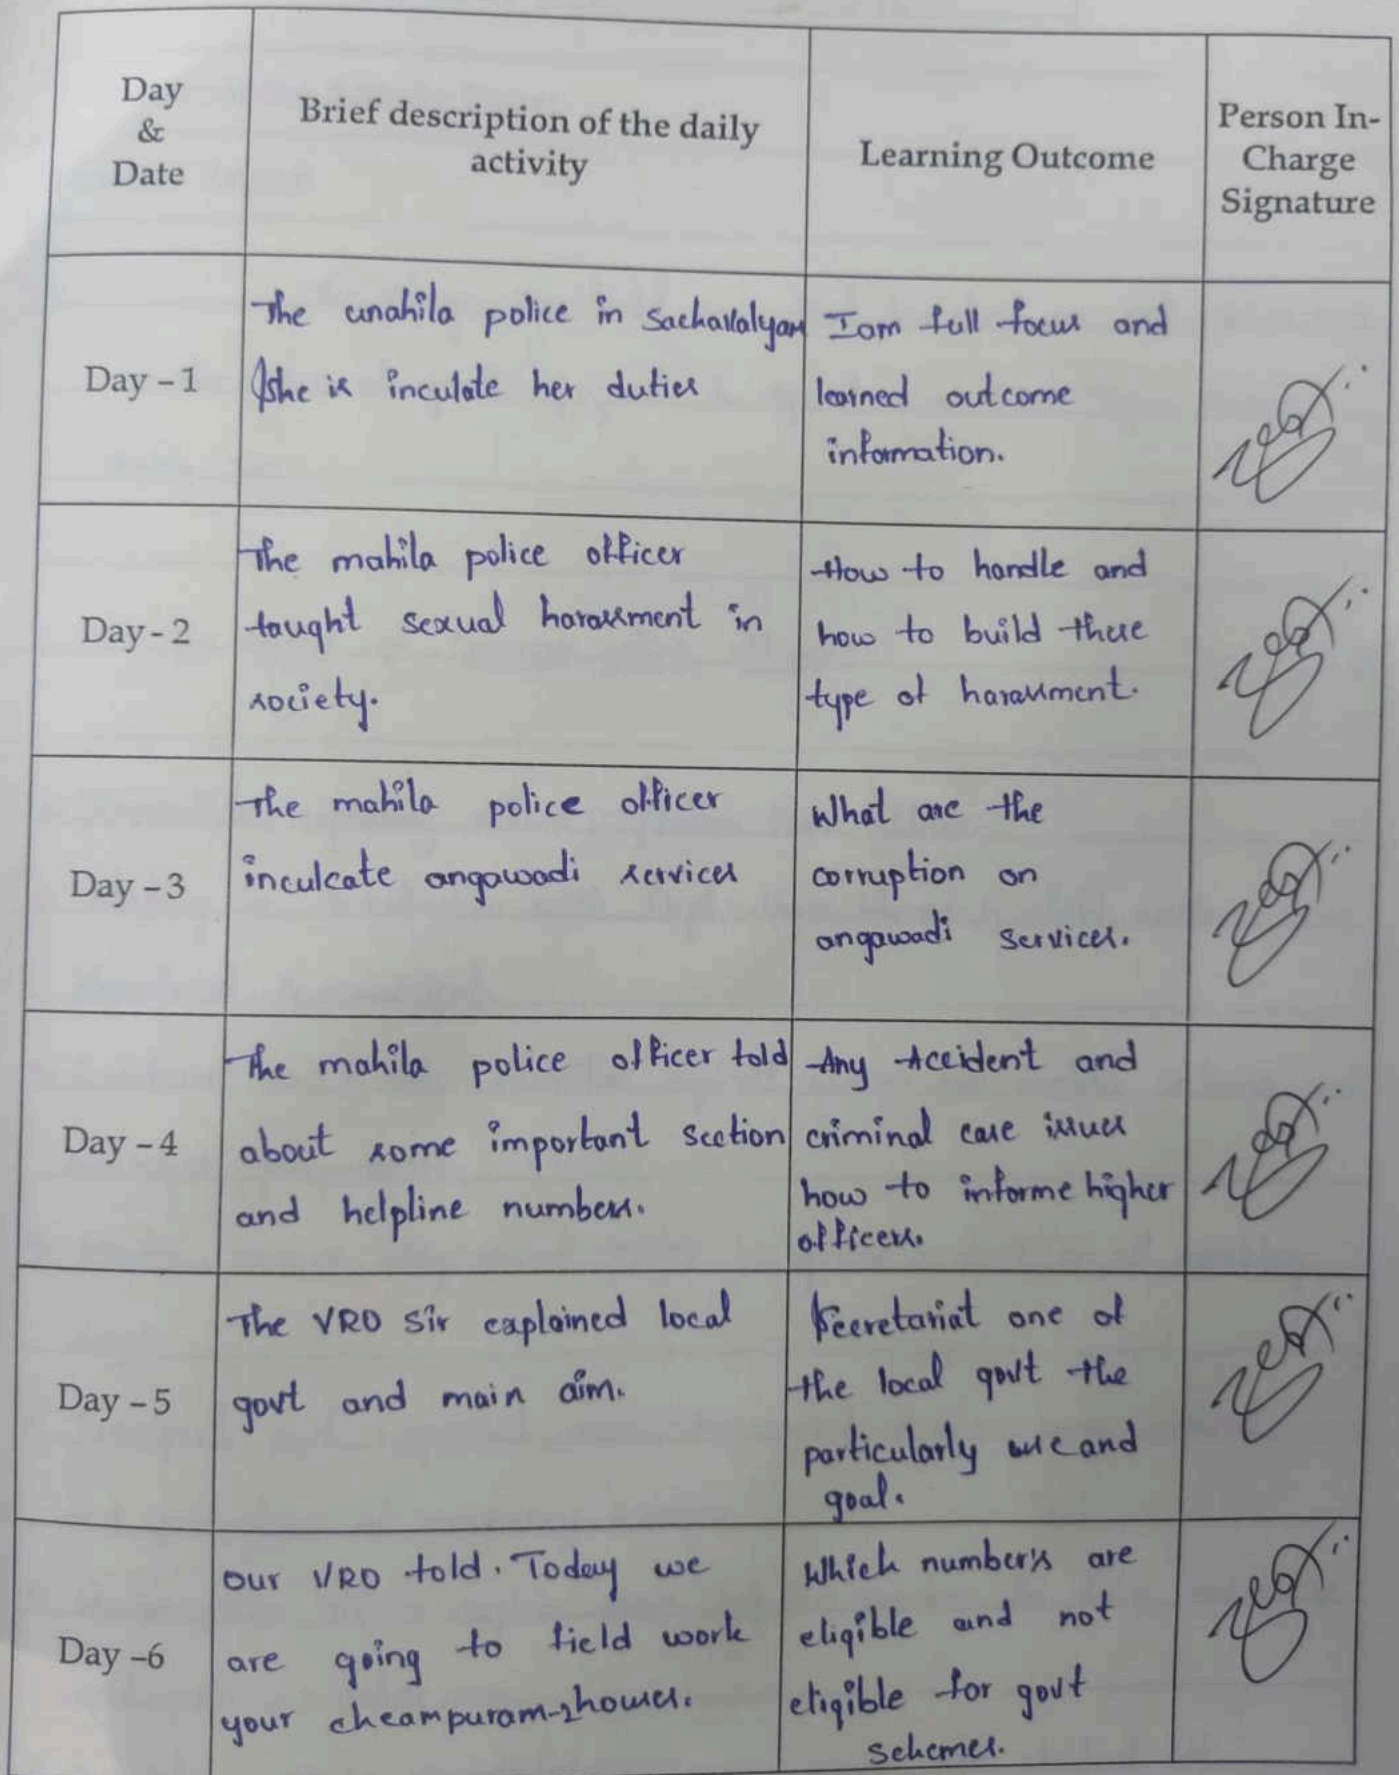 Day
&
Date
Brief description of the daily
activity
Learning Outcome
Person In-
Charge
Signature
Day - 1
The unahila police in sachavalyam
she is inculate her duties
I am full focus and
learned outcome
information.
Day - 2
The mahila police officer
taught sexual harassment in
society.
How to handle and
how to build these
type of harassment.
Day - 3
The mahila police officer
inculcate angawadi services
What are the
corruption on
angawadi services.
Day - 4
The mahila police officer told
about some important section
and helpline numbers.
Any Accident and
criminal case issues
how to informe higher
officers.
Day - 5
The VRO Sir explained local
govt and main aim.
Secretariat one of
the local govt the
particularly use and
goal.
Day -6
Our VRO told. Today we
are going to field work
your cheampuram-2houses.
Which number's are
eligible and not
eligible for govt
schemes.